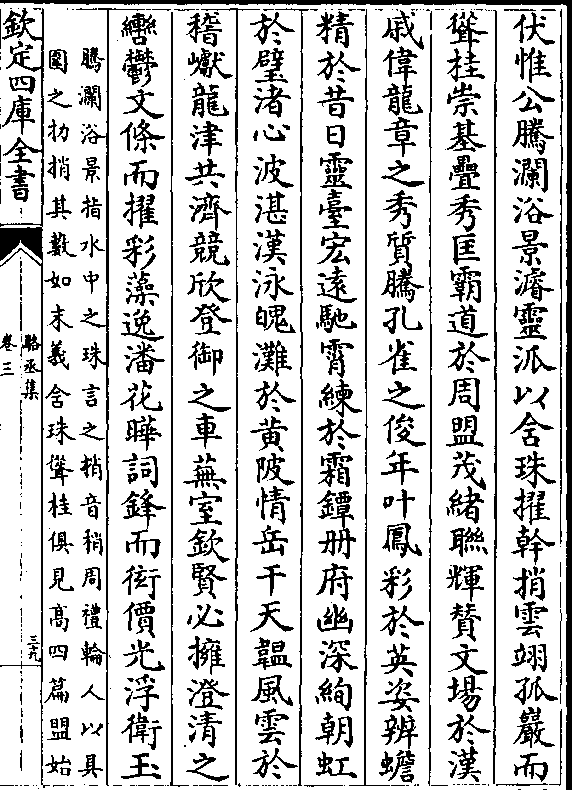 伏惟公騰瀾浴景濬靈派以含珠擢幹捎雲翊孤巖而
聳桂崇基疊秀匡霸道於周盟茂緒聯輝賛文場於漢
戚偉龍章之秀質騰孔雀之俊年叶鳳彩於英姿辨蟾
精於昔日靈臺宏遠馳霄練於霜鐔冊府幽深絢朝虹
於壁渚心波湛漢泳魄灘於黄陂情岳干天韞風雲於
稽巘龍津共濟競欣登御之車蕪室欽賢必擁澄清之
轡鬱文條而擢彩藻逸潘花曄詞鋒而衒價光浮衛玉
騰瀾浴景指水中之珠言之梢音稍周禮輪人以其
圍之扐捎其藪如末義舍珠聳桂俱見高四篇盟始
欽定四庫全書
駱丞集
卷三
三九